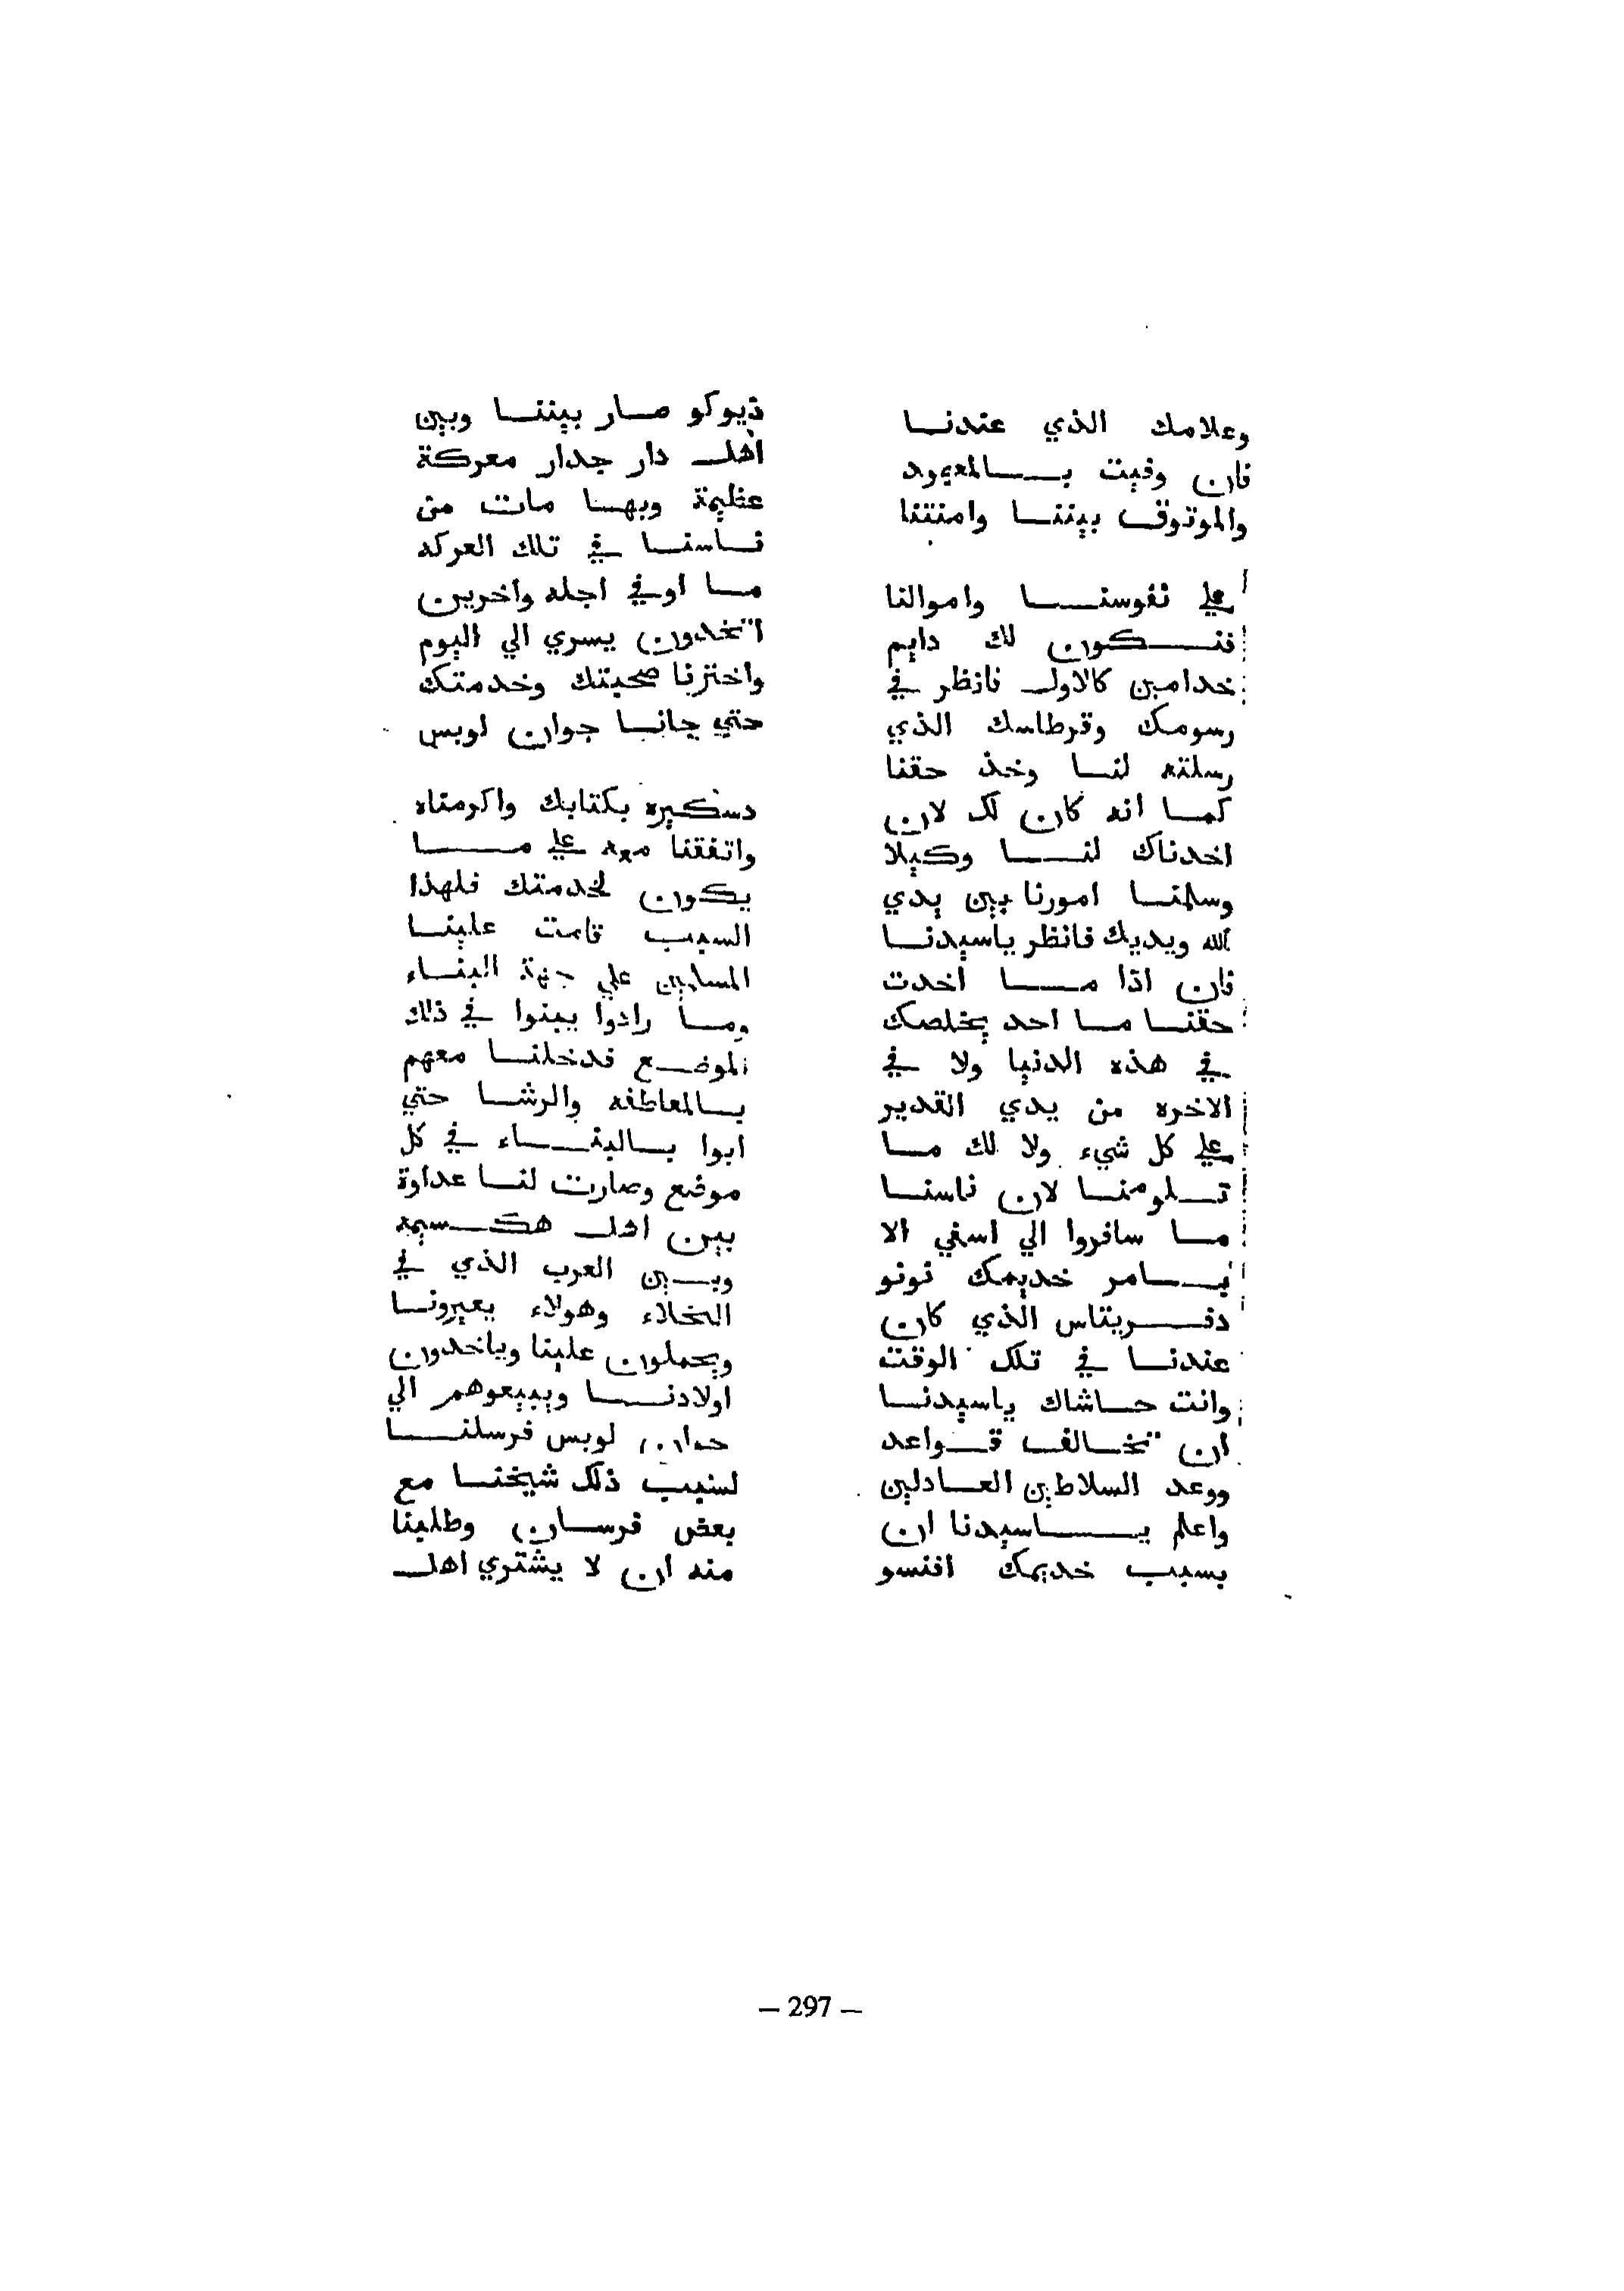 وعلامك الذي عندنا
فان وفيت بالمعهود
والموثوق بيننا وامنتنا
على نفوسنا واموالنا
فنكون لك دايم
خدامين كالاول فانظر في
رسومك وقرطاسك الذي
رسلته لنا وخذ حقنا
كما انه كان لك لان
اخدناك لنا وكيلا
وسلمنا امورنا بين يدي
الله ويديك فانظر ياسيدنا
فان اذا ما اخدت
حقنا ما احد يخلصك
في هذه الدنيا ولا في
الاخره من يدي القدير
على كل شيء ولا لك ما
تلومنا لان ناسنا
ما سافروا الي اسفي الا
بامر خديمك نونو
دفريتاس الذي كان
عندنا في تلك الوقت
وانت حاشاك ياسيدنا
ان تخالف قواعد
ووعد السلاطين العادلين
واعلم ياسيدنا ان
بسبب خديمك افنسو
ذيوكو صار بيننا وبين
اهل دار جدار معركة
عظيمة وبها مات من
ناسنا في تلك العركه
ما اوفي اجله واخرين
اتخدون يسري الي اليوم
واخترنا صحبتك وخدمتك
حتي جانا جوان لوبس
دسكيره بكتابك واكرمناه
واتفقنا معه على ما
يكون لخدمتك فلهذا
السبب قامت علينا
المسلمين علي جهة البناء
وما رادوا يبنوا في ذلك
الموضع فدخلنا معهم
بالمعاطفه والرشا حتي
ابوا بالبناء في كل
موضع وصارت لنا عداوة
بين اهل هكسيمه
وبين العرب الذي في
الخلاء وهولاء يعيرونا
ويحملون علينا وياخدون
اولادنا ويبيعوهم الي
جوان لوبس فرسلنا
لسبب ذلك شيخنا مع
بعض فرسان وطلبنا
منه ان لا يشتري اهل
– 297 –